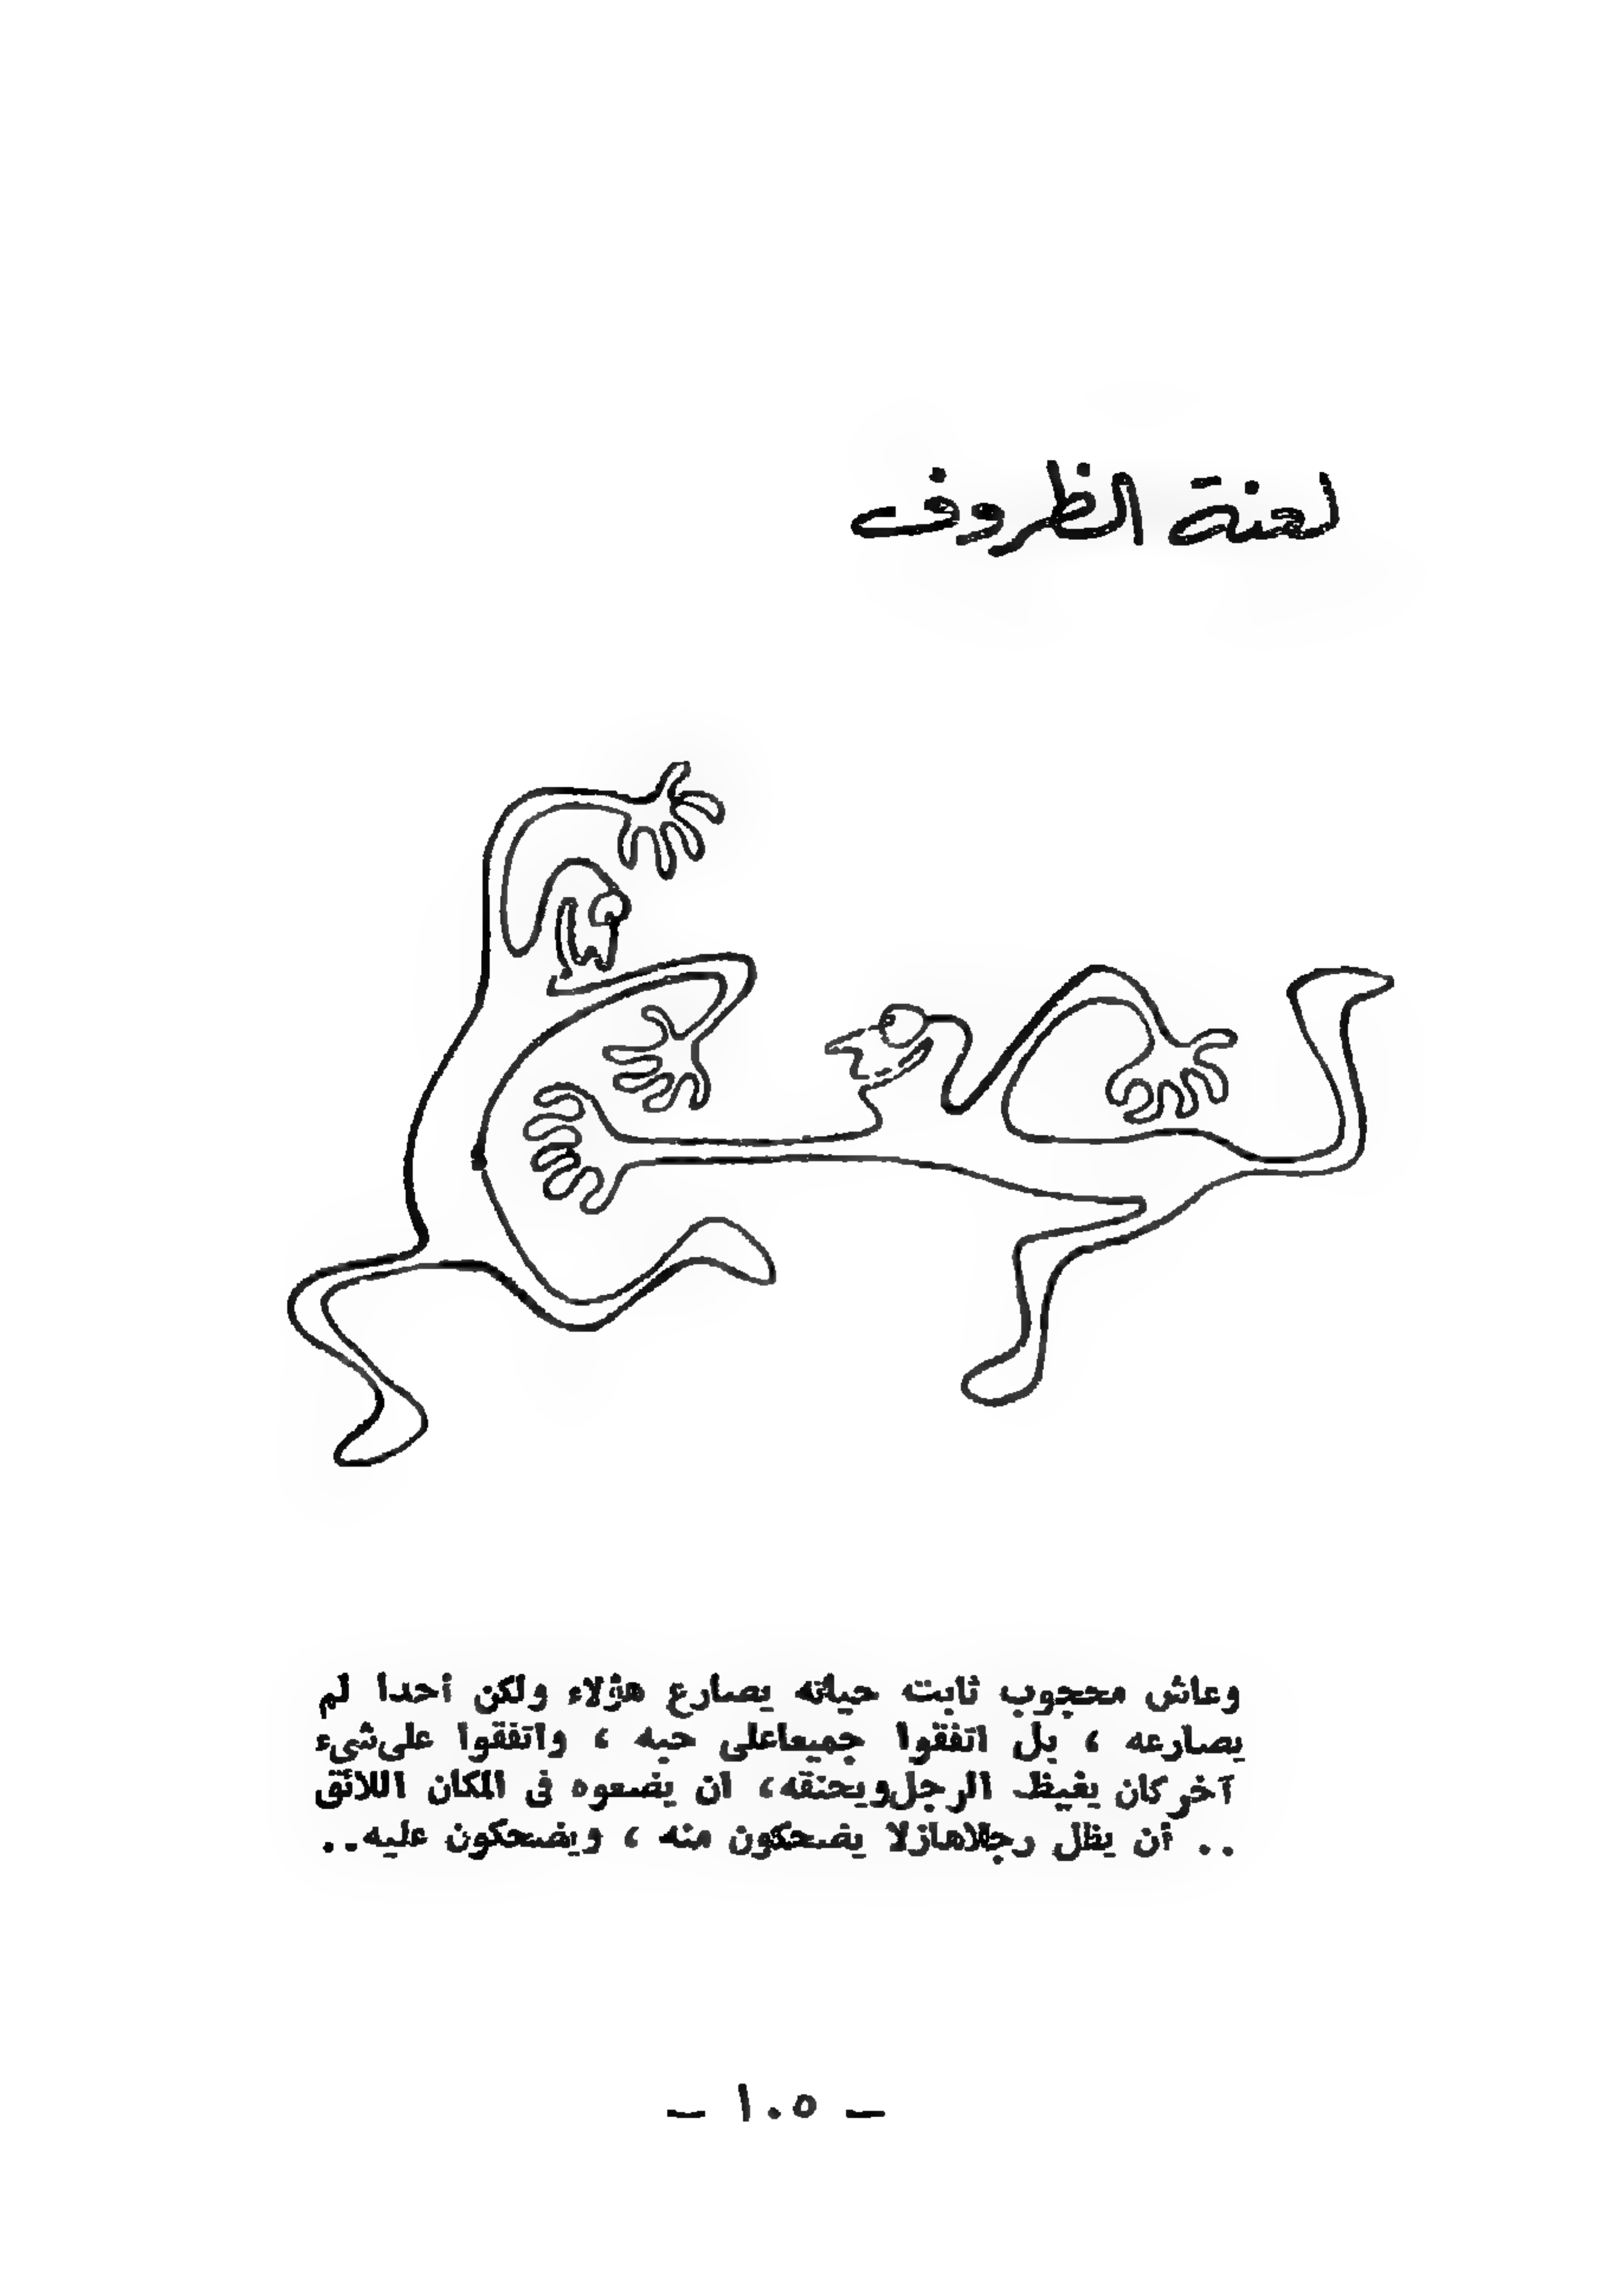 لعنة الظروف
وعاش محجوب ثابت حياته يصارع هؤلاء ولكن أحدا لم
يصارعه ، بل اتفقوا جميعا على حبه ، واتفقوا على شىء
آخر كان يغيظ الرجل ويحنقه ، ان يضعوه فى المكان اللائق
.. أن يظل رجلا هازلا يضحكون منه ، ويضحكون عليه ..
— ١٠٥ —